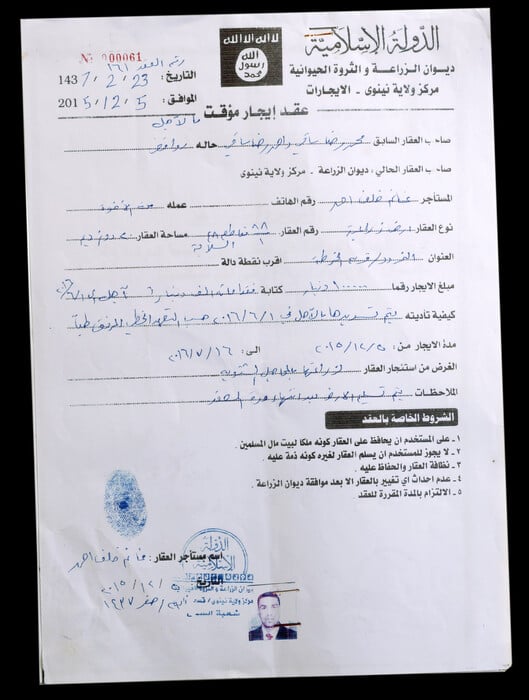 الدولة الإسلامية
ديوان الزراعة و الثروة الحيوانية
مركز ولاية نينوى - الايجارات
لا اله الا الله
الله
رسول
محمد
رقم العقد ١٦١
№ 000061
التاريخ: 23 / 2 / 1437
الموافق: 5 / 12 / 2015
عقد إيجار مؤقت
صاحب العقار السابق حاله
صاحب العقار الحالي : ديوان الزراعة - مركز ولاية نينوى
المستأجر غانم خلف احمد رقم الهاتف عمله
نوع العقار ارض زراعية رقم العقار ٨٨ مساحة العقار
العنوان اقرب نقطة دالة
مبلغ الايجار رقما ١٠٠٠٠٠ دينار كتابة فقط مائة الف دينار
كيفية تأديته يتم تسديدها بالآجل في ٢٠١٦/٦/١ حسب التعهد الخطي المرفق طياً
مدة الايجار من: ٢٠١٥/١٢/٥ الى: ٢٠١٦/٧/١٦
الغرض من استئجار العقار لزراعتها بالمحاصيل الشتوية
الملاحظات يتم تسليم الارض بعد انتهاء مدة العقد
الشروط الخاصة بالعقد
١ - على المستخدم ان يحافظ على العقار كونه ملكا لبيت مال المسلمين .
٢ - لا يجوز للمستخدم ان يسلم العقار لغيره كونه ذمة عليه .
٣ - نظافة العقار والحفاظ عليه .
٤ - عدم احداث اي تغيير بالعقار الا بعد موافقة ديوان الزراعة .
٥ - الالتزام بالمدة المقررة للعقد
اسم مستأجر العقار: غانم خلف احمد
التاريخ ٢٠١٥/١٢/٥
صفر ١٤٣٧
الدولة
الإسلامية
ديوان الزراعة و الثروة
مركز ولاية نينوى
شعبة